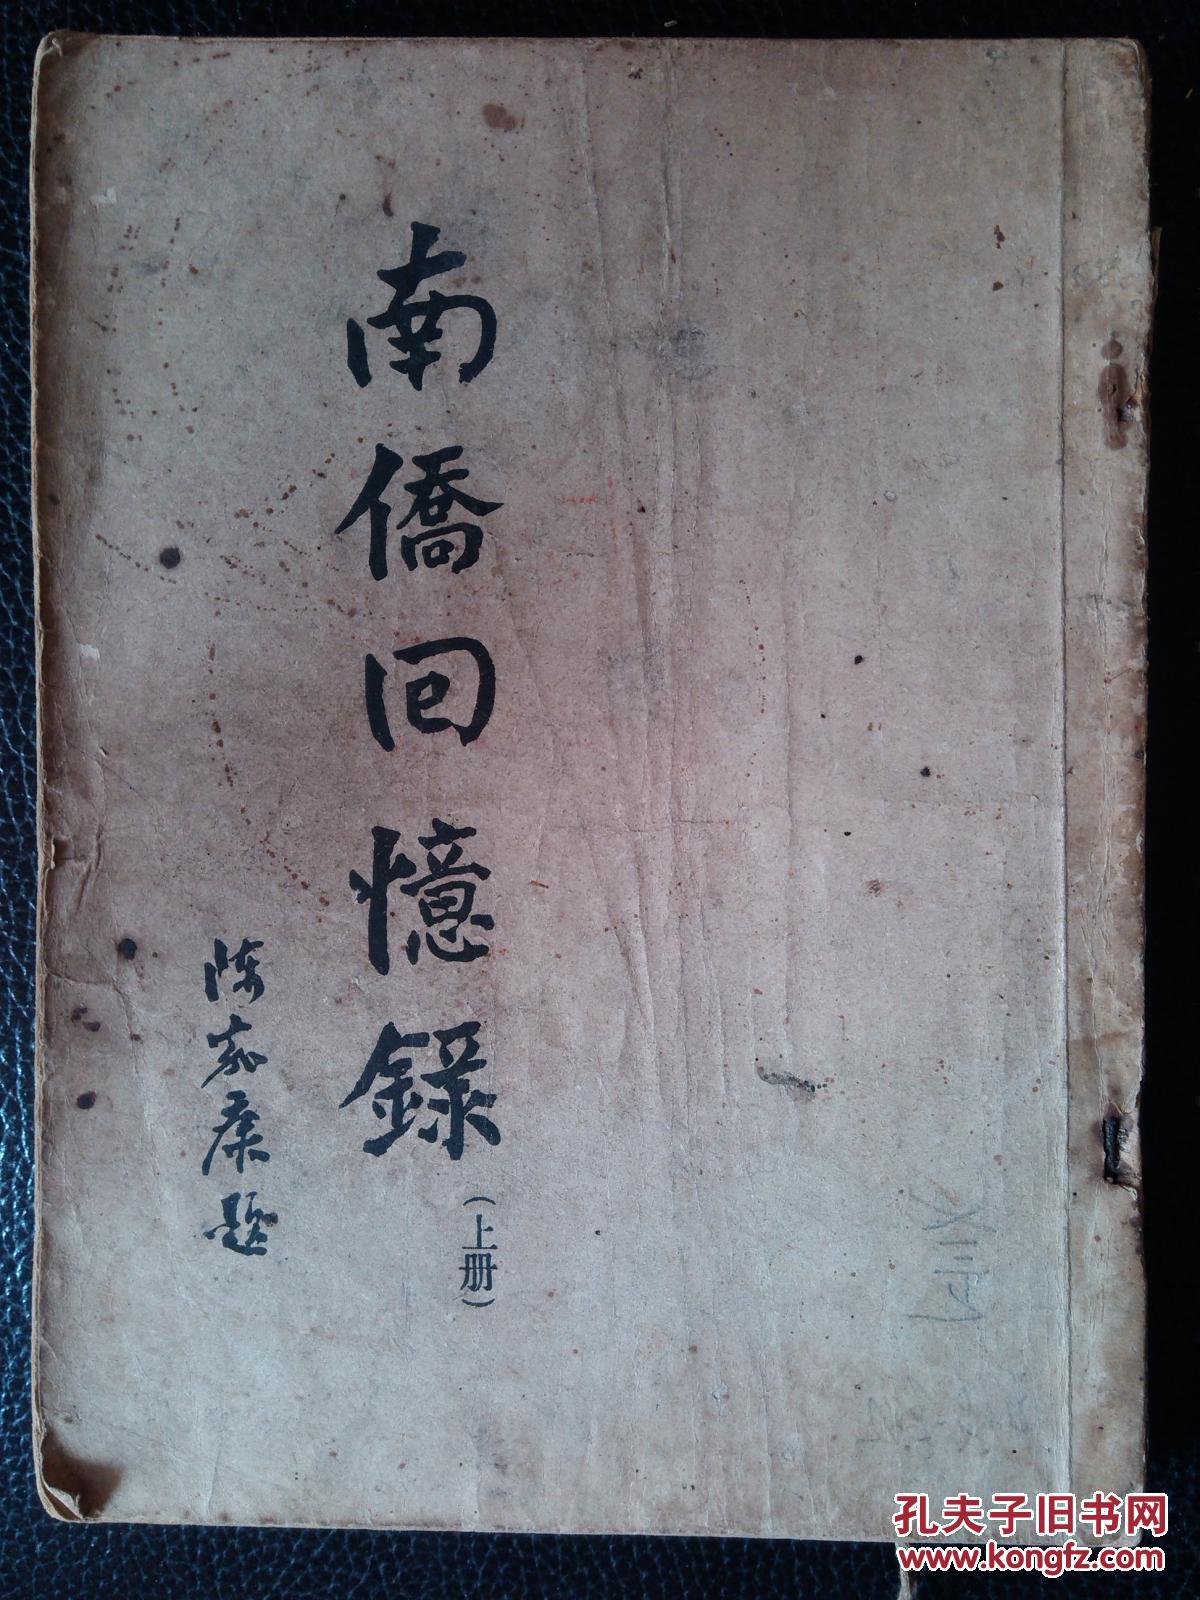 南僑回憶錄
(上册)
陳嘉庚題
孔夫子旧书网
www.kongfz.com